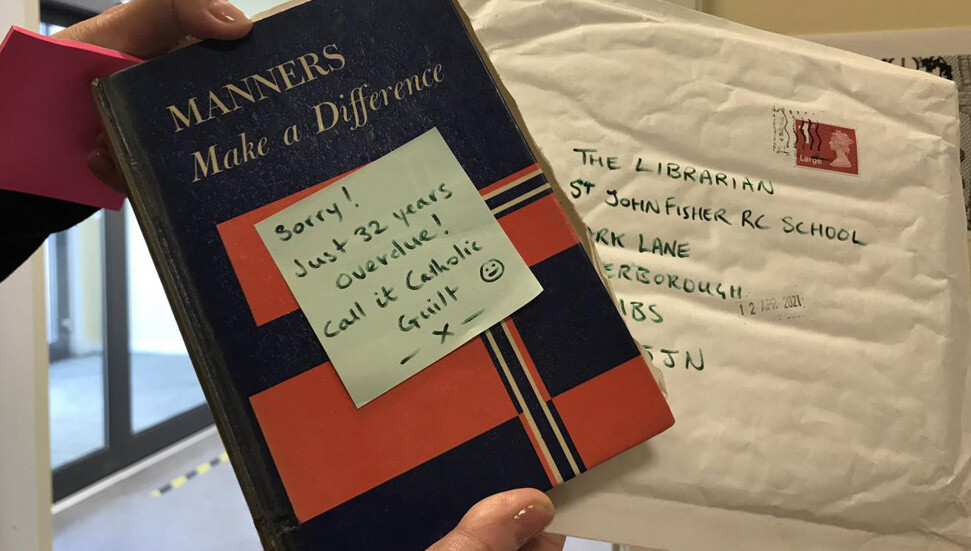 MANNERS
Make a Difference
Sorry!
Just 32 years
overdue!
Call it Catholic
Guilt ☺
- x -
Large
THE LIBRARIAN
ST JOHN FISHER RC SCHOOL
RK LANE
ERBOROUGH
12 APR 2021
IBS
JN